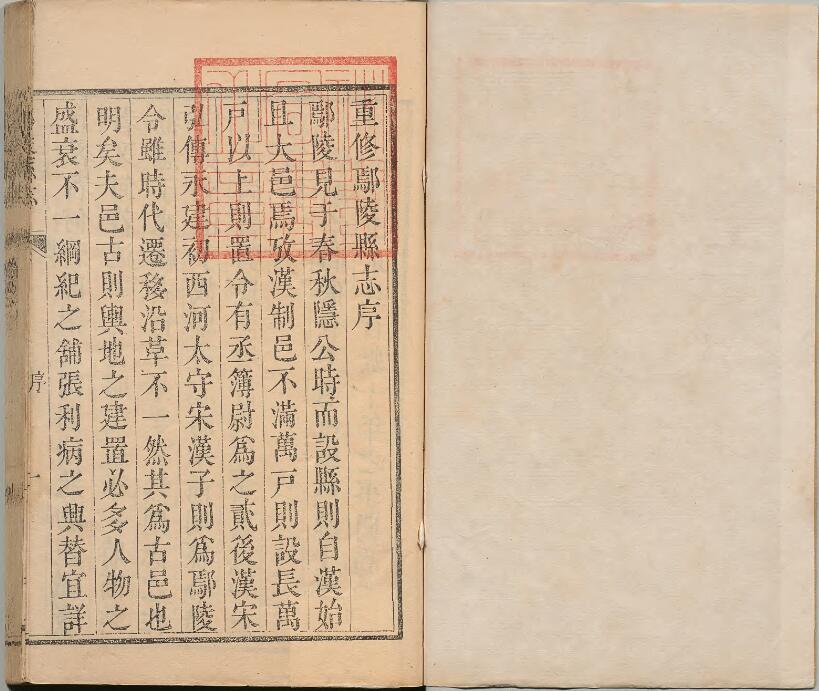 重修鄢陵縣志序
鄢陵見于春秋隱公時而設縣則自漢始
且大邑焉攷漢制邑不滿萬戸則設長萬
戸以上則置令有丞簿尉爲之貳後漢宋
弘傳永建初西河太守宋漢子則爲鄢陵
令雖時代遷移沿革不一然其爲古邑也
明矣夫邑古則輿地之建置必多人物之
盛衰不一綱紀之舖張利病之興替宜詳
序
一